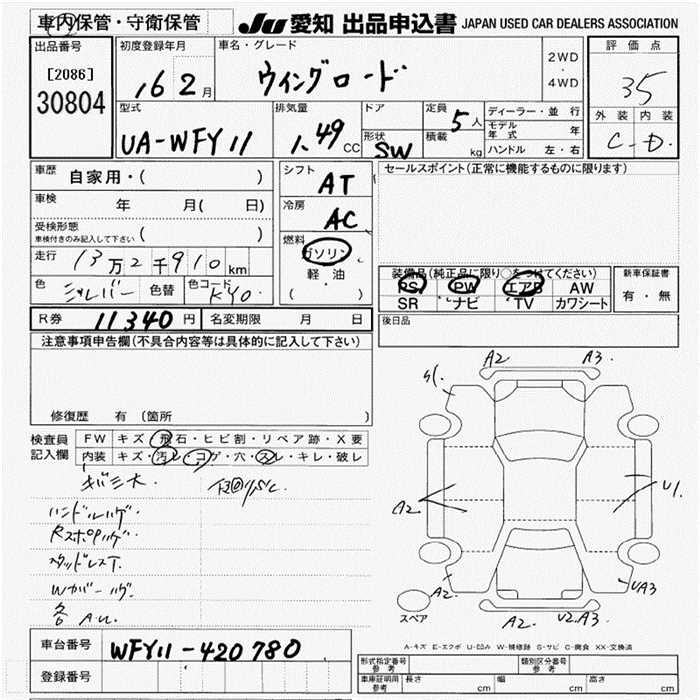 車内保管・守衛保管
JU 愛知 出品申込書 JAPAN USED CAR DEALERS ASSOCIATION
出品番号
[2086]
30804
初度登録年月
16 2月
車名・グレード
ウイングロード
2WD
・
4WD
評価点
3.5
外装 内装
C - D.
型式
UA-WFY11
排気量
1.49 CC
ドア
形状
SW
定員
5人
積載
kg
ディーラー・並行
モデル年式 年
ハンドル 左・右
車歴
自家用・( )
車検
年 月( 日)
受検形態
車検付きのみ記入して下さい ( )
走行
13万2千910km
色
シルバー
色替
色コード
KY0
シフト
AT
冷房
AC
燃料
ガソリン
軽・油
( ・ )
セールスポイント(正常に機能するものに限ります)
装備品(純正品に限り○をつけてください)
PS PW エアB AW
SR ナビ TV カワシート
新車保証書
有・無
R券 11340円
名変期限 月 日
後日品
注意事項申告欄(不具合内容等は具体的に記入して下さい)
修復歴 有 (箇所 )
検査員記入欄
FW キズ・飛石・ヒビ割・リペア跡・X要
内装 キズ・汚レ・コゲ・穴・スレ・キレ・破レ
キバミ大.
ハンドルハゲ.
RスポPハゲ.
スタッドレスT.
Wカバーハゲ.
各A.U.
A2 A3.
A2
U1.
A2. UA3
A2. U2.A3.
スペア
A-キズ E-エクボ U-凹み W-補修跡 S-サビ C-腐食 XX-交換済
車台番号
WFY11-420780
登録番号
形式指定番号 参考
類別区分番号 参考
車庫証明用 参考
長さ cm 幅 cm 高さ cm